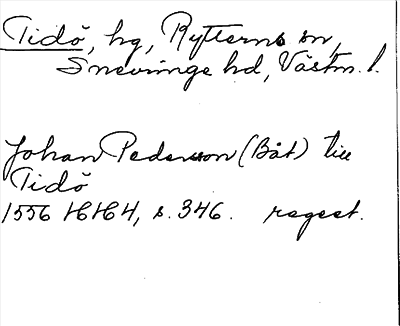 Tidö, hg, Rytterns sn,
Snevringe hd, Västm. l.
Johan Pederson (Båt) till
Tidö
1556 HH 4, s. 346. regest.